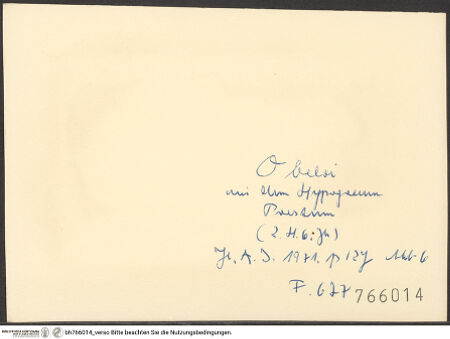 Obeloi
aus dem Hypogaeum
Paestum
(2. H. 6. Jh)
A. J. 1971. p 127 Abb. 6
F. 677 766014
bh766014_verso Bitte beachten Sie die Nutzungsbedingungen.